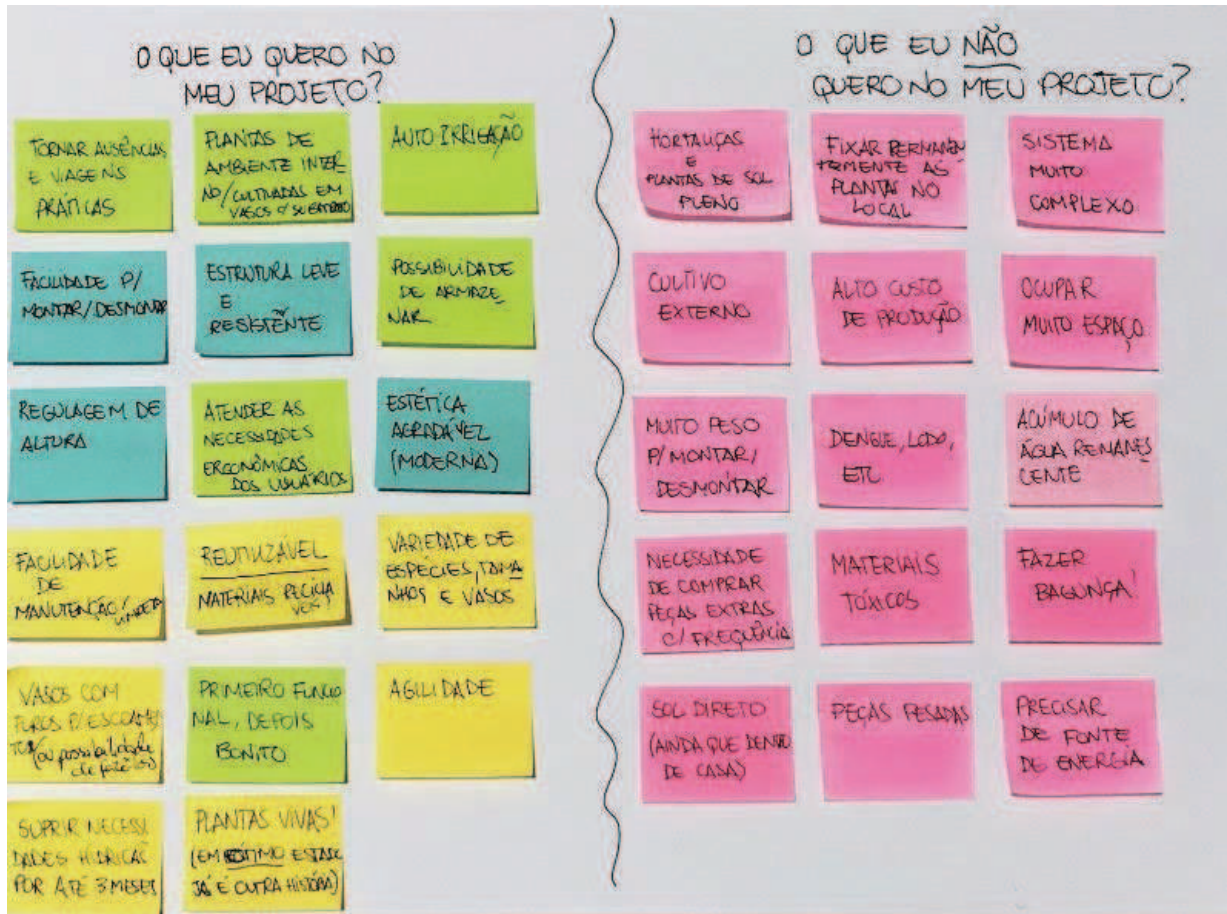 O QUE EU QUERO NO
MEU PROJETO?
TORNAR AUSÊNCIAS
E VIAGENS
PRÁTICAS
PLANTAS DE
AMBIENTE INTER
NO/CULTIVADAS EM
VASOS C/ SUBSTRATO
AUTO IRRIGAÇÃO
FACILIDADE P/
MONTAR/DESMONTAR
ESTRUTURA LEVE
E
RESISTENTE
POSSIBILIDADE
DE ARMAZE
NAR
REGULAGEM DE
ALTURA
ATENDER AS
NECESSIDADES
ERGONÔMICAS
DOS USUÁRIOS
ESTÉTICA
AGRADÁVEL
(MODERNA)
FACILIDADE
DE
MANUTENÇÃO/LIMPEZA
REUTILIZÁVEL
MATERIAIS RECICLÁ
VEIS
VARIEDADE DE
ESPÉCIES, TAMA
NHOS E VASOS
VASOS COM
FUROS P/ESCOAMEN
TO (ou possibilidade
de fazê-los)
PRIMEIRO FUNCIO
NAL, DEPOIS
BONITO
AGILIDADE
SUPRIR NECESSI
DADES HÍDRICAS
POR ATÉ 3 MESES
PLANTAS VIVAS!
(EM ÓTIMO ESTADO
JÁ É OUTRA HISTÓRIA)
O QUE EU NÃO
QUERO NO MEU PROJETO?
HORTALIÇAS
E
PLANTAS DE SOL
PLENO
FIXAR PERMANEN
TEMENTE AS
PLANTAS NO
LOCAL
SISTEMA
MUITO
COMPLEXO
CULTIVO
EXTERNO
ALTO CUSTO
DE PRODUÇÃO
OCUPAR
MUITO ESPAÇO
MUITO PESO
P/MONTAR/
DESMONTAR
DENGUE, LODO,
ETC
ACÚMULO DE
ÁGUA REMANES
CENTE
NECESSIDADE
DE COMPRAR
PEÇAS EXTRAS
C/ FREQUÊNCIA
MATERIAIS
TÓXICOS
FAZER
BAGUNÇA!
SOL DIRETO
(AINDA QUE DENTRO
DE CASA)
PEÇAS PESADAS
PRECISAR
DE FONTE
DE ENERGIA